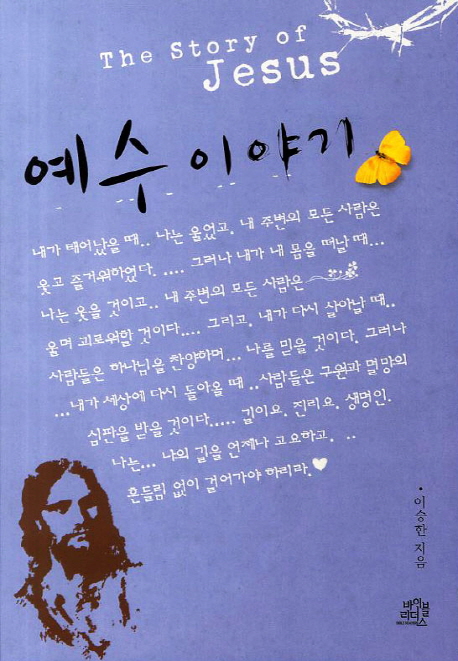 The Story of
Jesus
예수 이야기
내가 태어났을 때.. 나는 울었고. 내 주변의 모든 사람은
웃고 즐거워하였다. .... 그러나 내가 내 몸을 떠날 때...
나는 웃을 것이고.. 내 주변의 모든 사람은
울며 괴로워할 것이다.... 그리고. 내가 다시 살아날 때..
사람들은 하나님을 찬양하며... 나를 믿을 것이다. 그러나
...내가 세상에 다시 돌아올 때 ..사람들은 구원과 멸망의
심판을 받을 것이다..... 길이요. 진리요. 생명인.
나는... 나의 길을 언제나 고요하고. ..
흔들림 없이 걸어가야 하리라.
• 이승한 지음
바이블
리더스